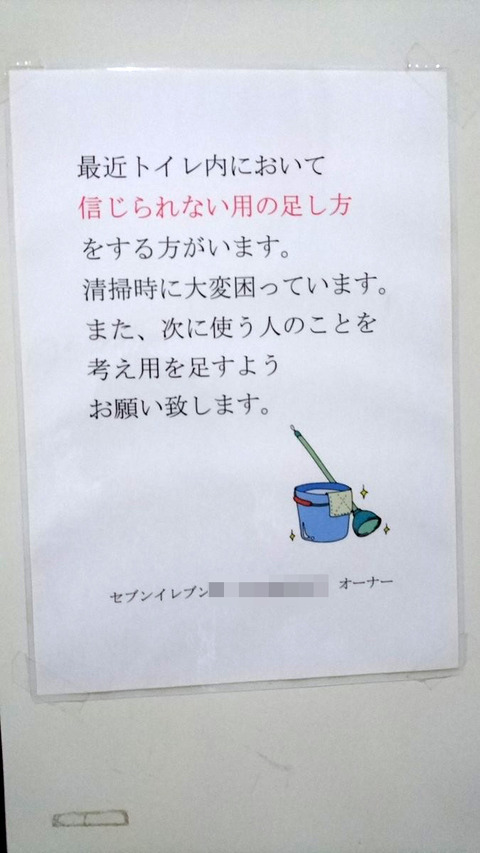 最近トイレ内において
信じられない用の足し方
をする方がいます。
清掃時に大変困っています。
また、次に使う人のことを
考え用を足すよう
お願い致します。
セブンイレブン オーナー